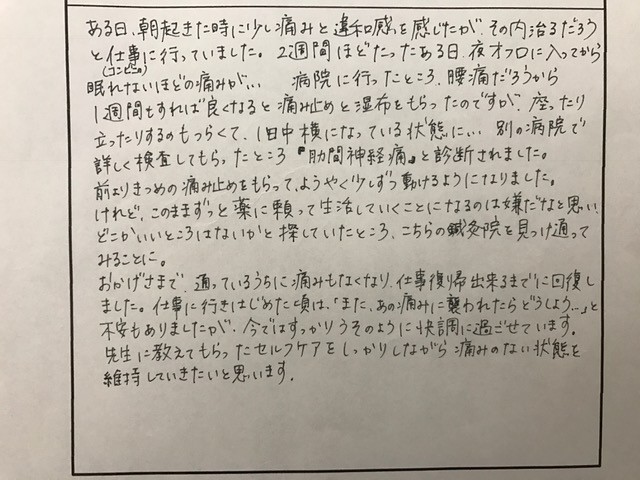 ある日、朝起きた時に少し痛みと違和感を感じたが、その内治るだろう
と仕事に行っていました。2週間ほどたったある日、夜オフロに入ってから
(コンビニ)
眠れないほどの痛みが… 病院に行ったところ、腰痛だろうから
1週間もすれば良くなると痛み止めと湿布をもらったのですが、座ったり
立ったりするのもつらくて、1日中横になっている状態に… 別の病院で
詳しく検査してもらったところ『肋間神経痛』と診断されました。
前よりきつめの痛み止めをもらって、ようやく少しずつ動けるようになりました。
けれど、このままずっと薬に頼って生活していくことになるのは嫌だなと思い、
どこかいいところはないかと探していたところ、こちらの鍼灸院を見つけ通って
みることに。
おかげさまで、通っているうちに痛みもなくなり、仕事復帰出来るまでに回復し
ました。仕事に行きはじめた頃は、「また、あの痛みに襲われたらどうしよう…」と
不安もありましたが、今ではすっかりうそのように快調に過ごせています。
先生に教えてもらったセルフケアをしっかりしながら痛みのない状態を
維持していきたいと思います。